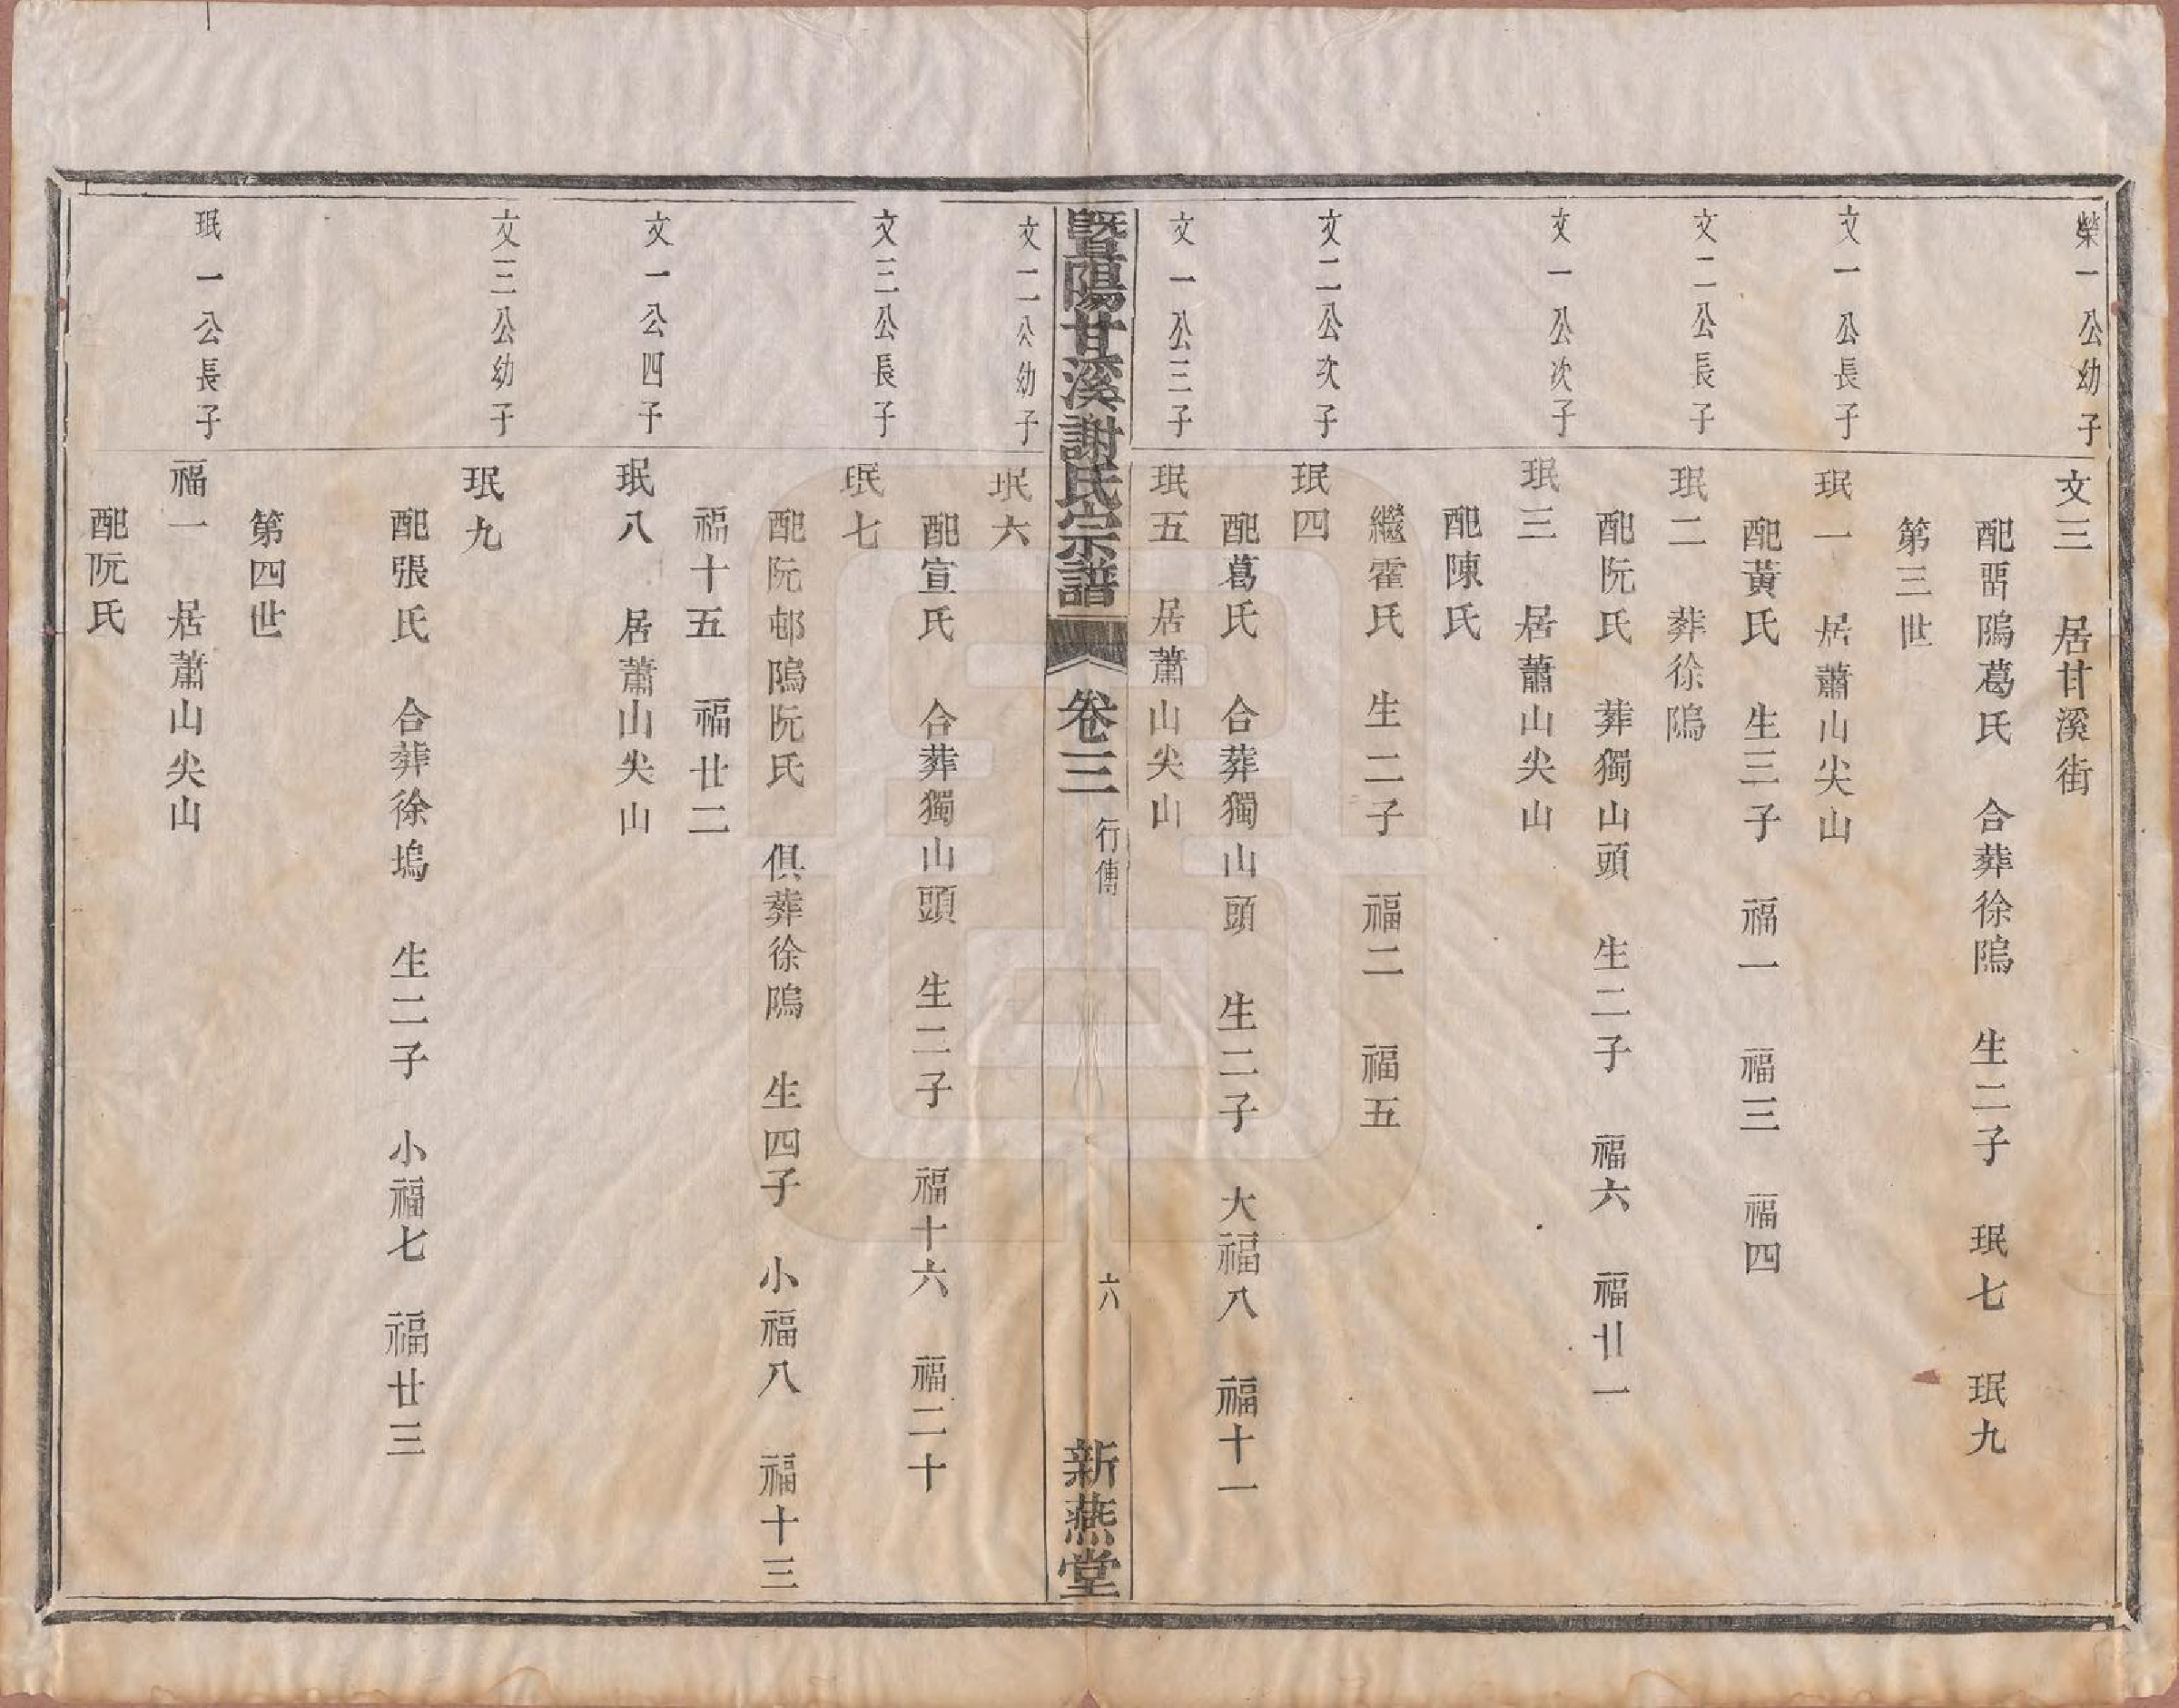 榮一公幼子
文三　居甘溪街
配畱隝葛氏　合葬徐隝　生二子　珉七　珉九
第三世
文一公長子
珉一　居蕭山尖山
配黃氏　生三子　福一　福三　福四
文二公長子
珉二　葬徐隝
配阮氏　葬獨山頭　生二子　福六　福廿一
文一公次子
珉三　居蕭山尖山
配陳氏
繼霍氏　生二子　福二　福五
文二公次子
珉四
配葛氏　合葬獨山頭　生二子　大福八　福十一
文一公三子
珉五　居蕭山尖山
暨陽甘溪謝氏宗譜　卷三　行傳　六　新燕堂
文二公幼子
珉六
配宣氏　合葬獨山頭　生二子　福十六　福二十
文三公長子
珉七
配阮邨隝阮氏　俱葬徐隝　生四子　小福八　福十三
福十五　福廿二
文一公四子
珉八　居蕭山尖山
文三公幼子
珉九
配張氏　合葬徐塢　生二子　小福七　福廿三
第四世
珉一公長子
福一　居蕭山尖山
配阮氏